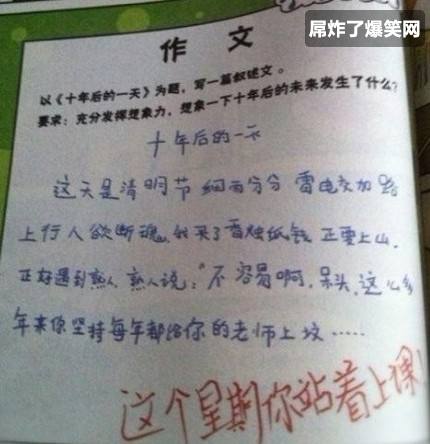 屌炸了爆笑网
作 文
以《十年后的一天》为题，写一篇叙述文。
要求：充分发挥想象力，想象一下十年后的未来发生了什么？
十年后的一天
这天是清明节 细雨分分 雷电交加 路
上行人欲断魂，我买了香烛纸钱 正要上山，
正好遇到熟人 熟人说："不容易啊，呆头，这么多
年来你坚持每年都给你的老师上坟……
这个星期你站着上课！